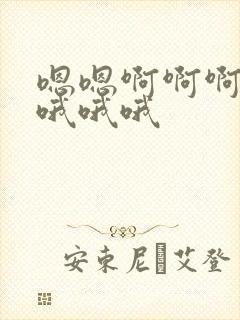 嗯嗯啊啊啊
哦哦哦
安東尼艾登